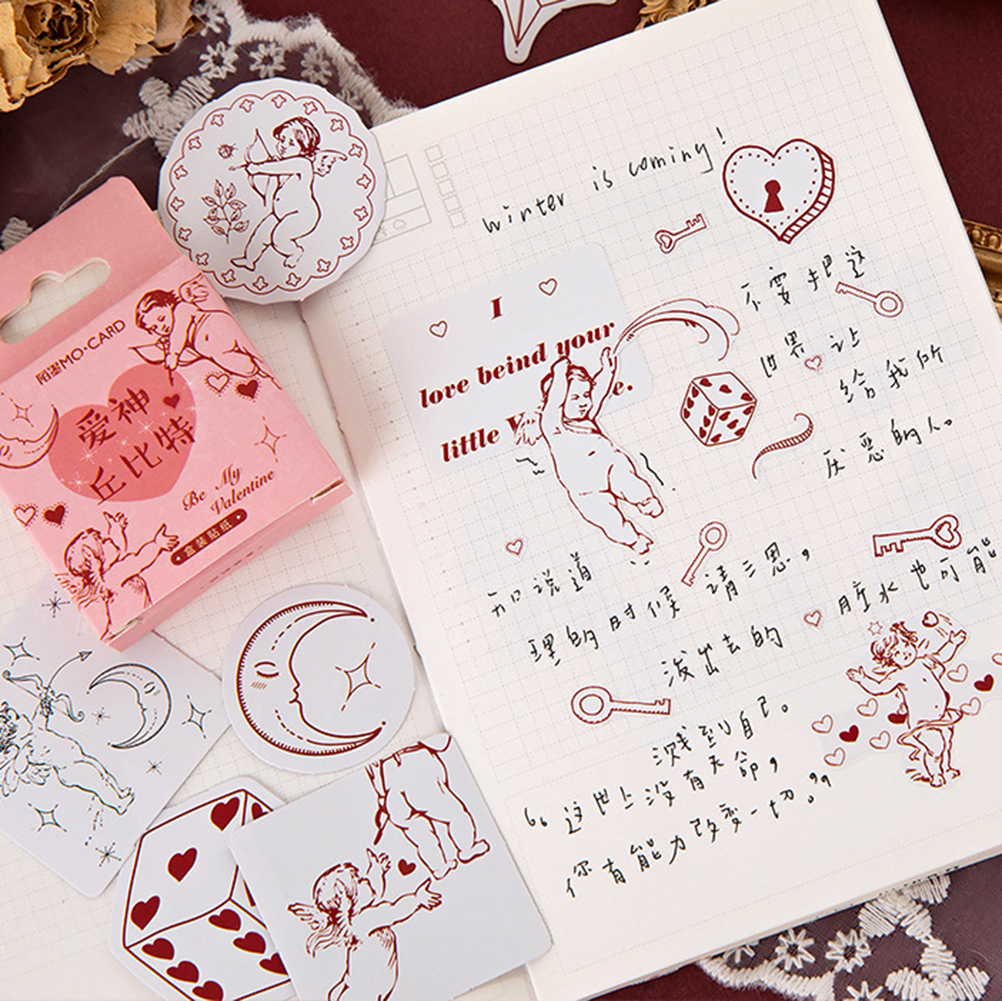 陌墨MO·CARD
爱神
丘比特
Be My
Valentine
盒装贴纸
winter is coming!
I
love beind your
little
e.
不要把这
世界让
给我所
厌恶的人。
知说道
理的时候请三思,
脏水也可能
泼出去的
溅到自己。
这世上没有天命,
你有能力改变一切。